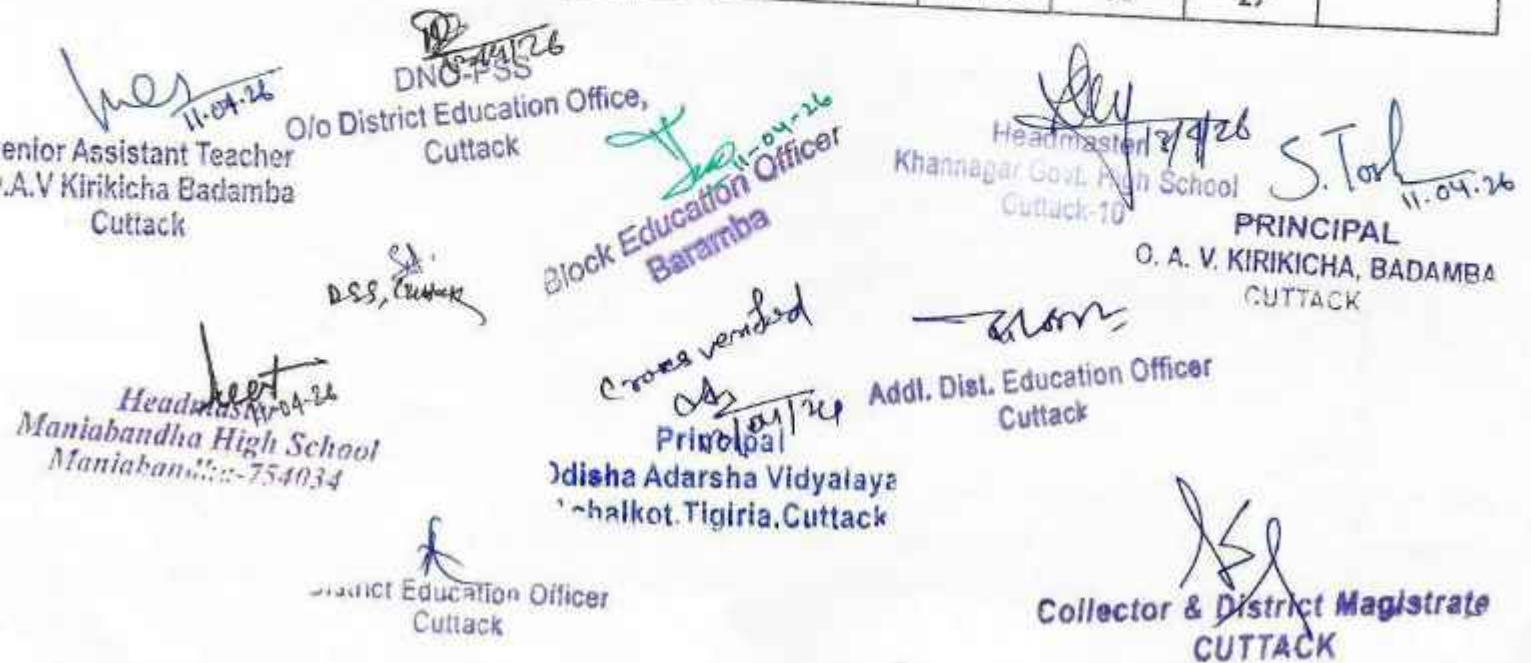 11-04-26
Senior Assistant Teacher
O.A.V Kirikicha Badamba
Cuttack
DNO-PSS
O/o District Education Office,
Cuttack
11-04-26
Block Education Officer
Baramba
Headmaster
Khannagar Govt. High School
Cuttack-10
S.
11.04.26
PRINCIPAL
O. A. V. KIRIKICHA, BADAMBA
CUTTACK
DSS, Cuttack
11-04-26
Headmaster
Maniabandha High School
Maniabandha-754034
Cross verified
Principal
Odisha Adarsha Vidyalaya
Tigiria, Cuttack
Addl. Dist. Education Officer
Cuttack
District Education Officer
Cuttack
Collector & District Magistrate
CUTTACK